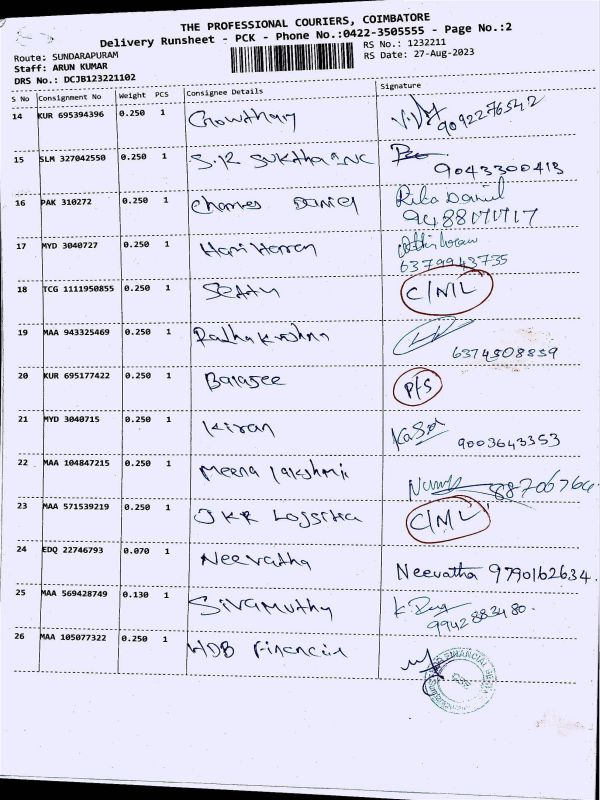 THE PROFESSIONAL COURIERS, COIMBATORE
Delivery Runsheet - PCK - Phone No.:0422-3505555 - Page No.:2
Route: SUNDARAPURAM
Staff: ARUN KUMAR
DRS No.: DCJB123221102
RS No.: 1232211
RS Date: 27-Aug-2023
S No Consignment No Weight PCS Consignee Details Signature
14 KUR 695394396 0.250 1 Gowtham 9092276542
15 SLM 327042550 0.250 1 S.R INC 9043300413
16 PAK 310272 0.250 1 Charles Daniel Rita Daniel
9488171717
17 MYD 3040727 0.250 1 Hari Haran
6379943735
18 TCG 1111950855 0.250 1 Setty C/N/L
19 MAA 943325469 0.250 1 Radhakrishna
6374508859
20 KUR 695177422 0.250 1 Balajee P/S
21 MYD 3040715 0.250 1 Kiran 9003643353
22 MAA 104847215 0.250 1 Meena lakshmi 88706764
23 MAA 571539219 0.250 1 JKR C/N/L
24 EDQ 22746793 0.070 1 Neevatha Neevatha 9790162634.
25 MAA 569428749 0.130 1 Sivamuthu
9942883480.
26 MAA 105077322 0.250 1 HDB Financial